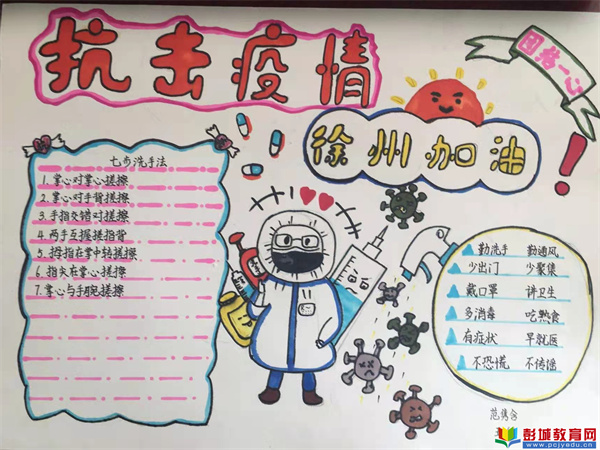 抗击疫情
团结一心
徐州加油!
七步洗手法
1.掌心对掌心搓擦
2.掌心对手背搓擦
3.手指交错对搓擦
4.两手互握搓指背
5.拇指在掌中转搓擦
6.指尖在掌心搓擦
7.掌心与手腕搓擦
勤洗手 勤通风
少出门 少聚集
戴口罩 讲卫生
多消毒 吃熟食
有症状 早就医
不恐慌 不传谣
彭城教育网
www.pcjyedu.cn